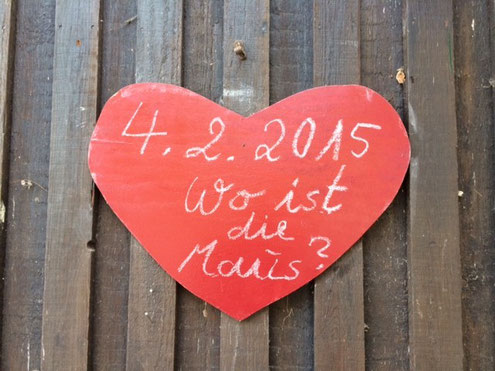 4.2.2015
Wo ist
die
Maus?